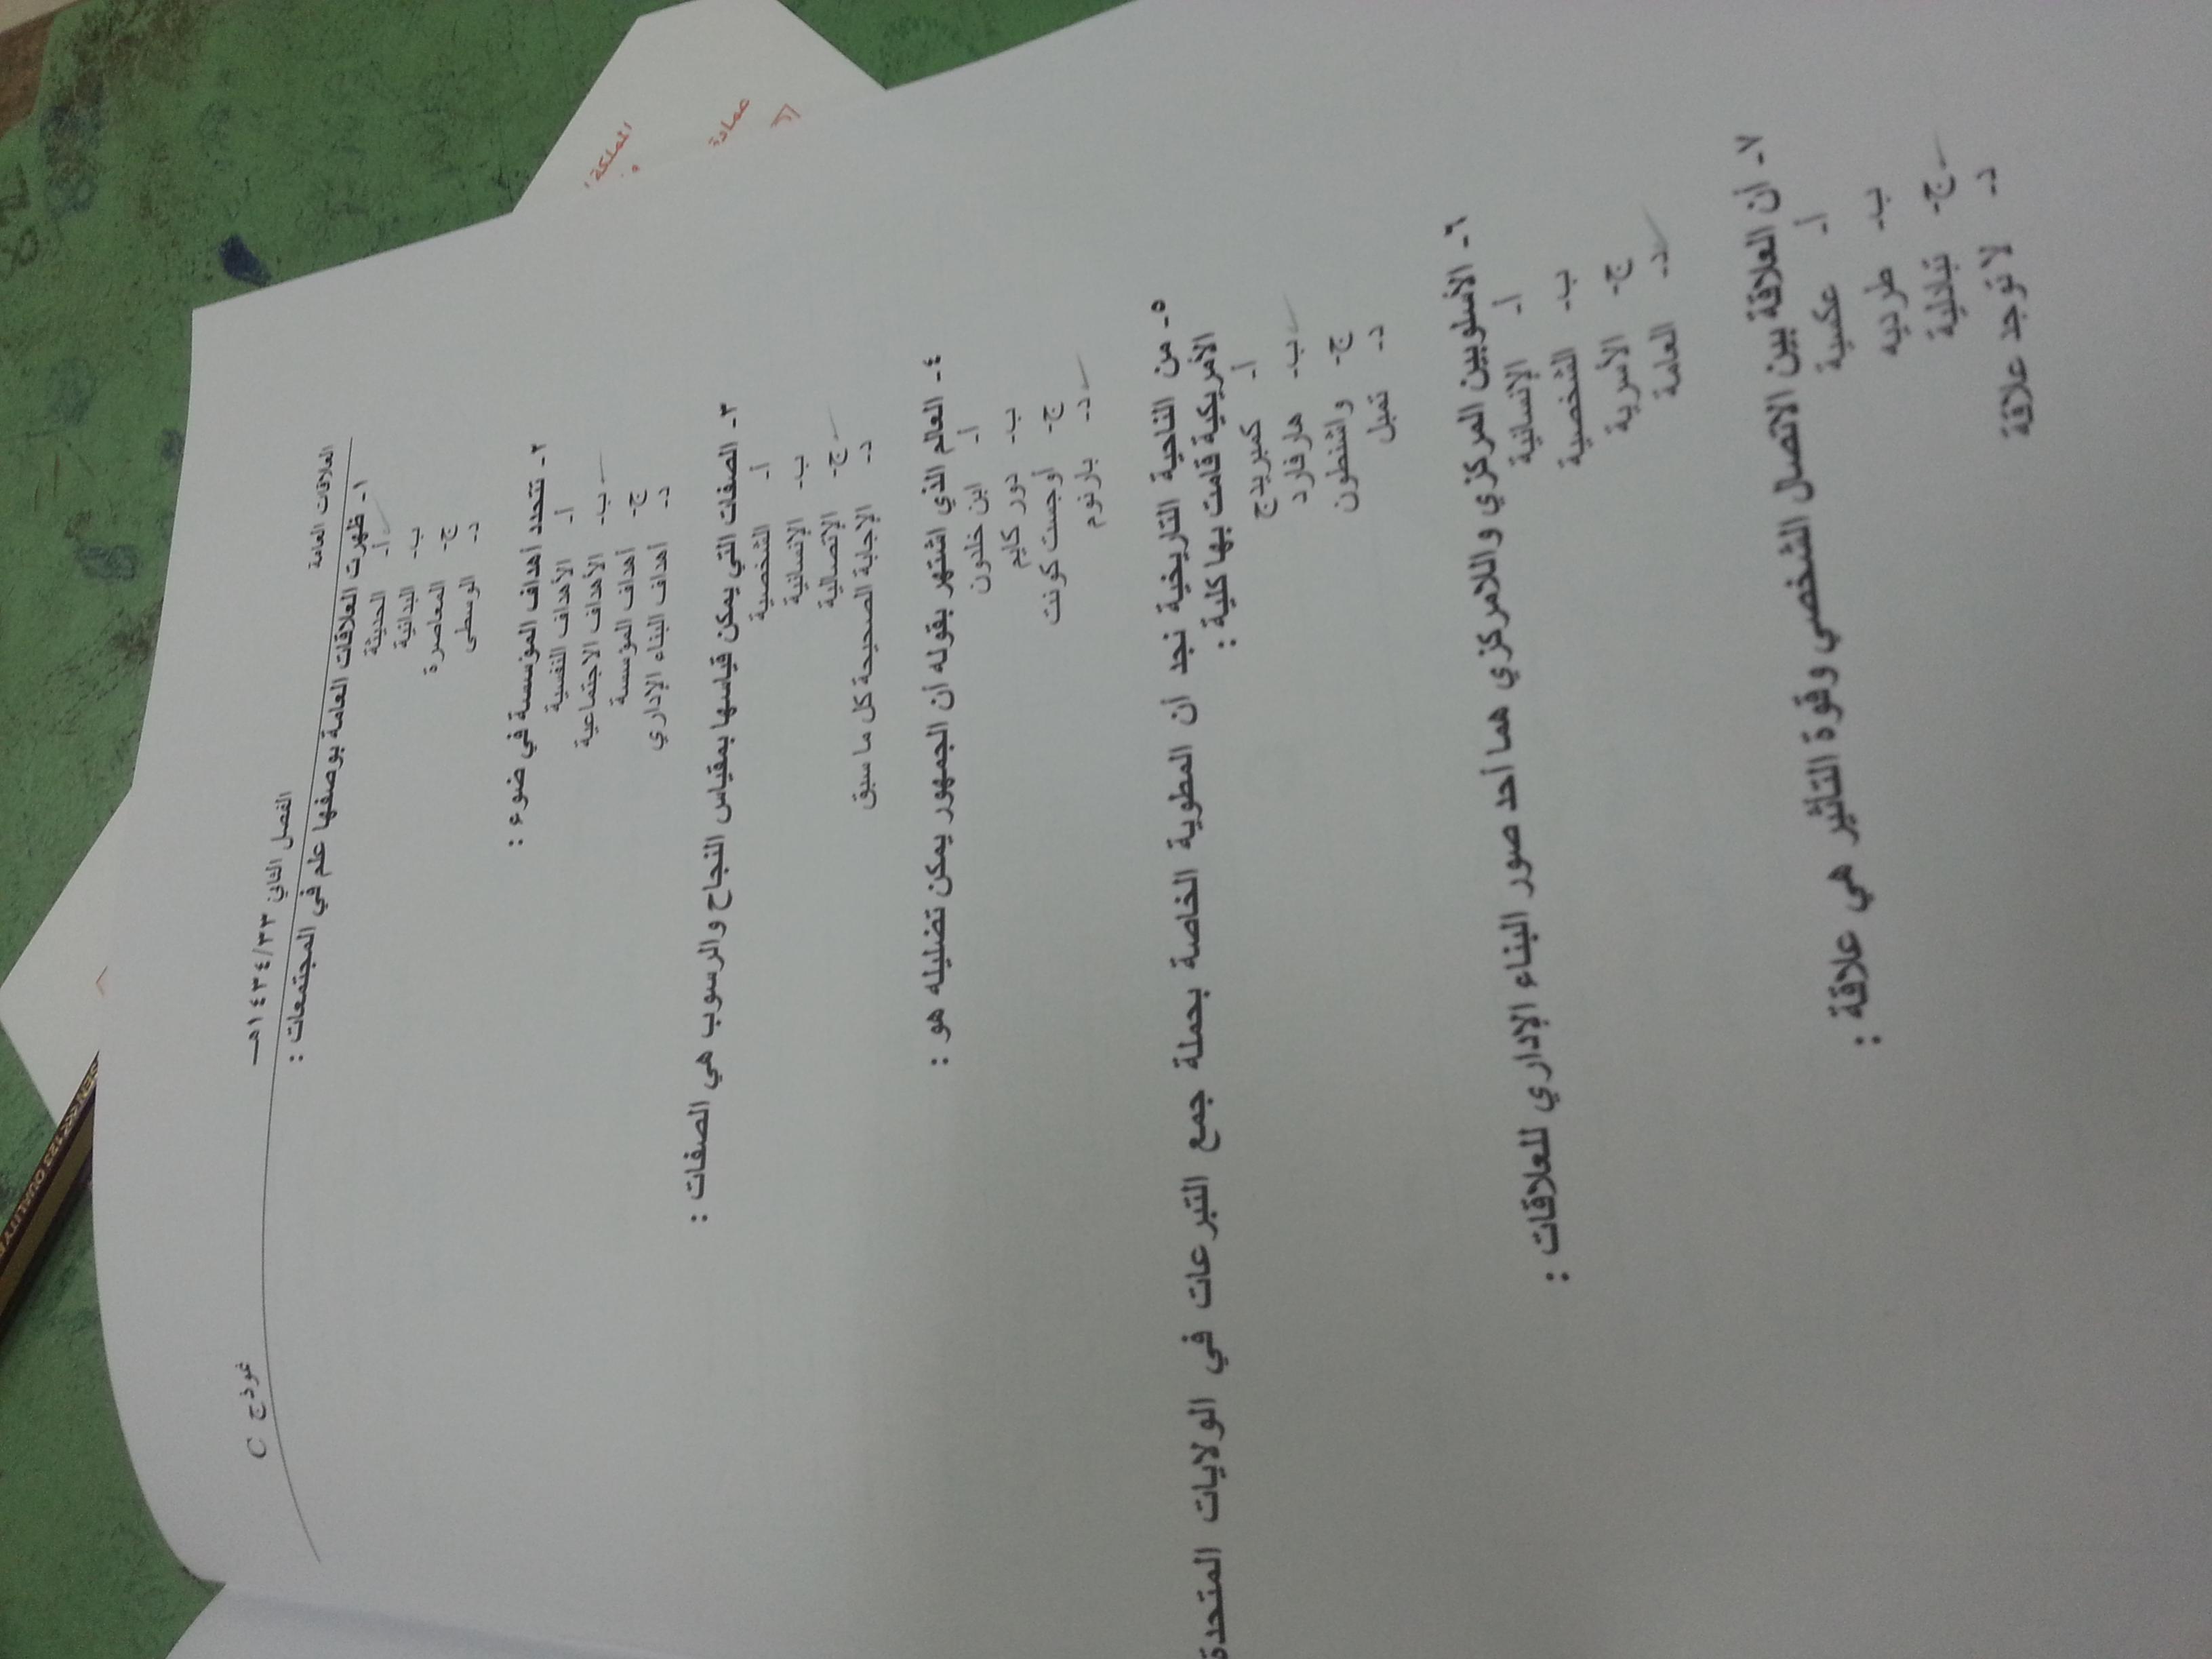 العلاقات العامة الفصل الثاني ١٤٣٤/٣٣هـ نموذج C
١- ظهرت العلاقات العامة بوصفها علم في المجتمعات :
أ- الحديثة
ب- البدائية
ج- المعاصرة
د- الوسطى
٢- تتحدد أهداف المؤسسة في ضوء :
أ- الأهداف النفسية
ب- الأهداف الاجتماعية
ج- أهداف المؤسسة
د- أهداف البناء الإداري
٣- الصفات التي يمكن قياسها بمقياس النجاح والرسوب هي الصفات :
أ- الشخصية
ب- الإنسانية
ج- الإتصالية
د- الإجابة الصحيحة كل ما سبق
٤- العالم الذي اشتهر بقوله أن الجمهور يمكن تضليله هو :
أ- ابن خلدون
ب- دور كايم
ج- أوجست كونت
د- بارنوم
٥- من الناحية التاريخية نجد أن المطوية الخاصة بحملة جمع التبرعات في الولايات المتحدة
الأمريكية قامت بها كلية :
أ- كمبريدج
ب- هارفارد
ج- واشنطون
د- تمبل
٦- الأسلوبين المركزي واللامركزي هما أحد صور البناء الإداري للعلاقات :
أ- الإنسانية
ب- الشخصية
ج- الأسرية
د- العامة
٧- أن العلاقة بين الاتصال الشخصي وقوة التأثير هي علاقة :
أ- عكسية
ب- طرديه
ج- تبادلية
د- لا توجد علاقة
المملكة
عمادة